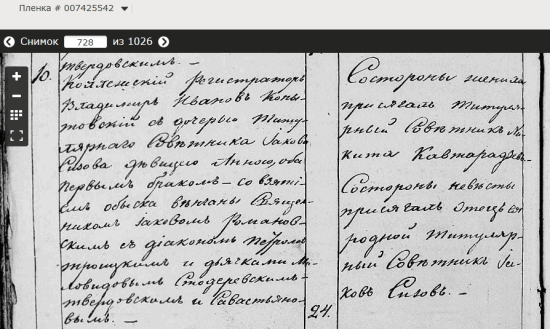 Пленка # 007425542
Снимок 728 из 1026
твердовскимъ. —
10. Коллежскій Регистраторъ
Владимиръ Ивановъ
товскій съ дочерью Титу-
лярнаго Совѣтника Іакова
Сизова дѣвицею Анною, оба
первымъ бракомъ — со взяті-
емъ обыска вѣнчаны Священ-
никомъ Іаковомъ Романов-
скимъ съ діакономъ Петромъ
Троицкимъ и дьячками
ловидовымъ
твердовскимъ и Савастьяно-
вымъ. —
Состороны жениха
присягалъ Титуля-
рный Совѣтникъ Ни-
кита
Состороны невѣсты
присягалъ отецъ ея
родной Титуляр-
ный Совѣтникъ Іа-
ковъ Сизовъ. —
24.